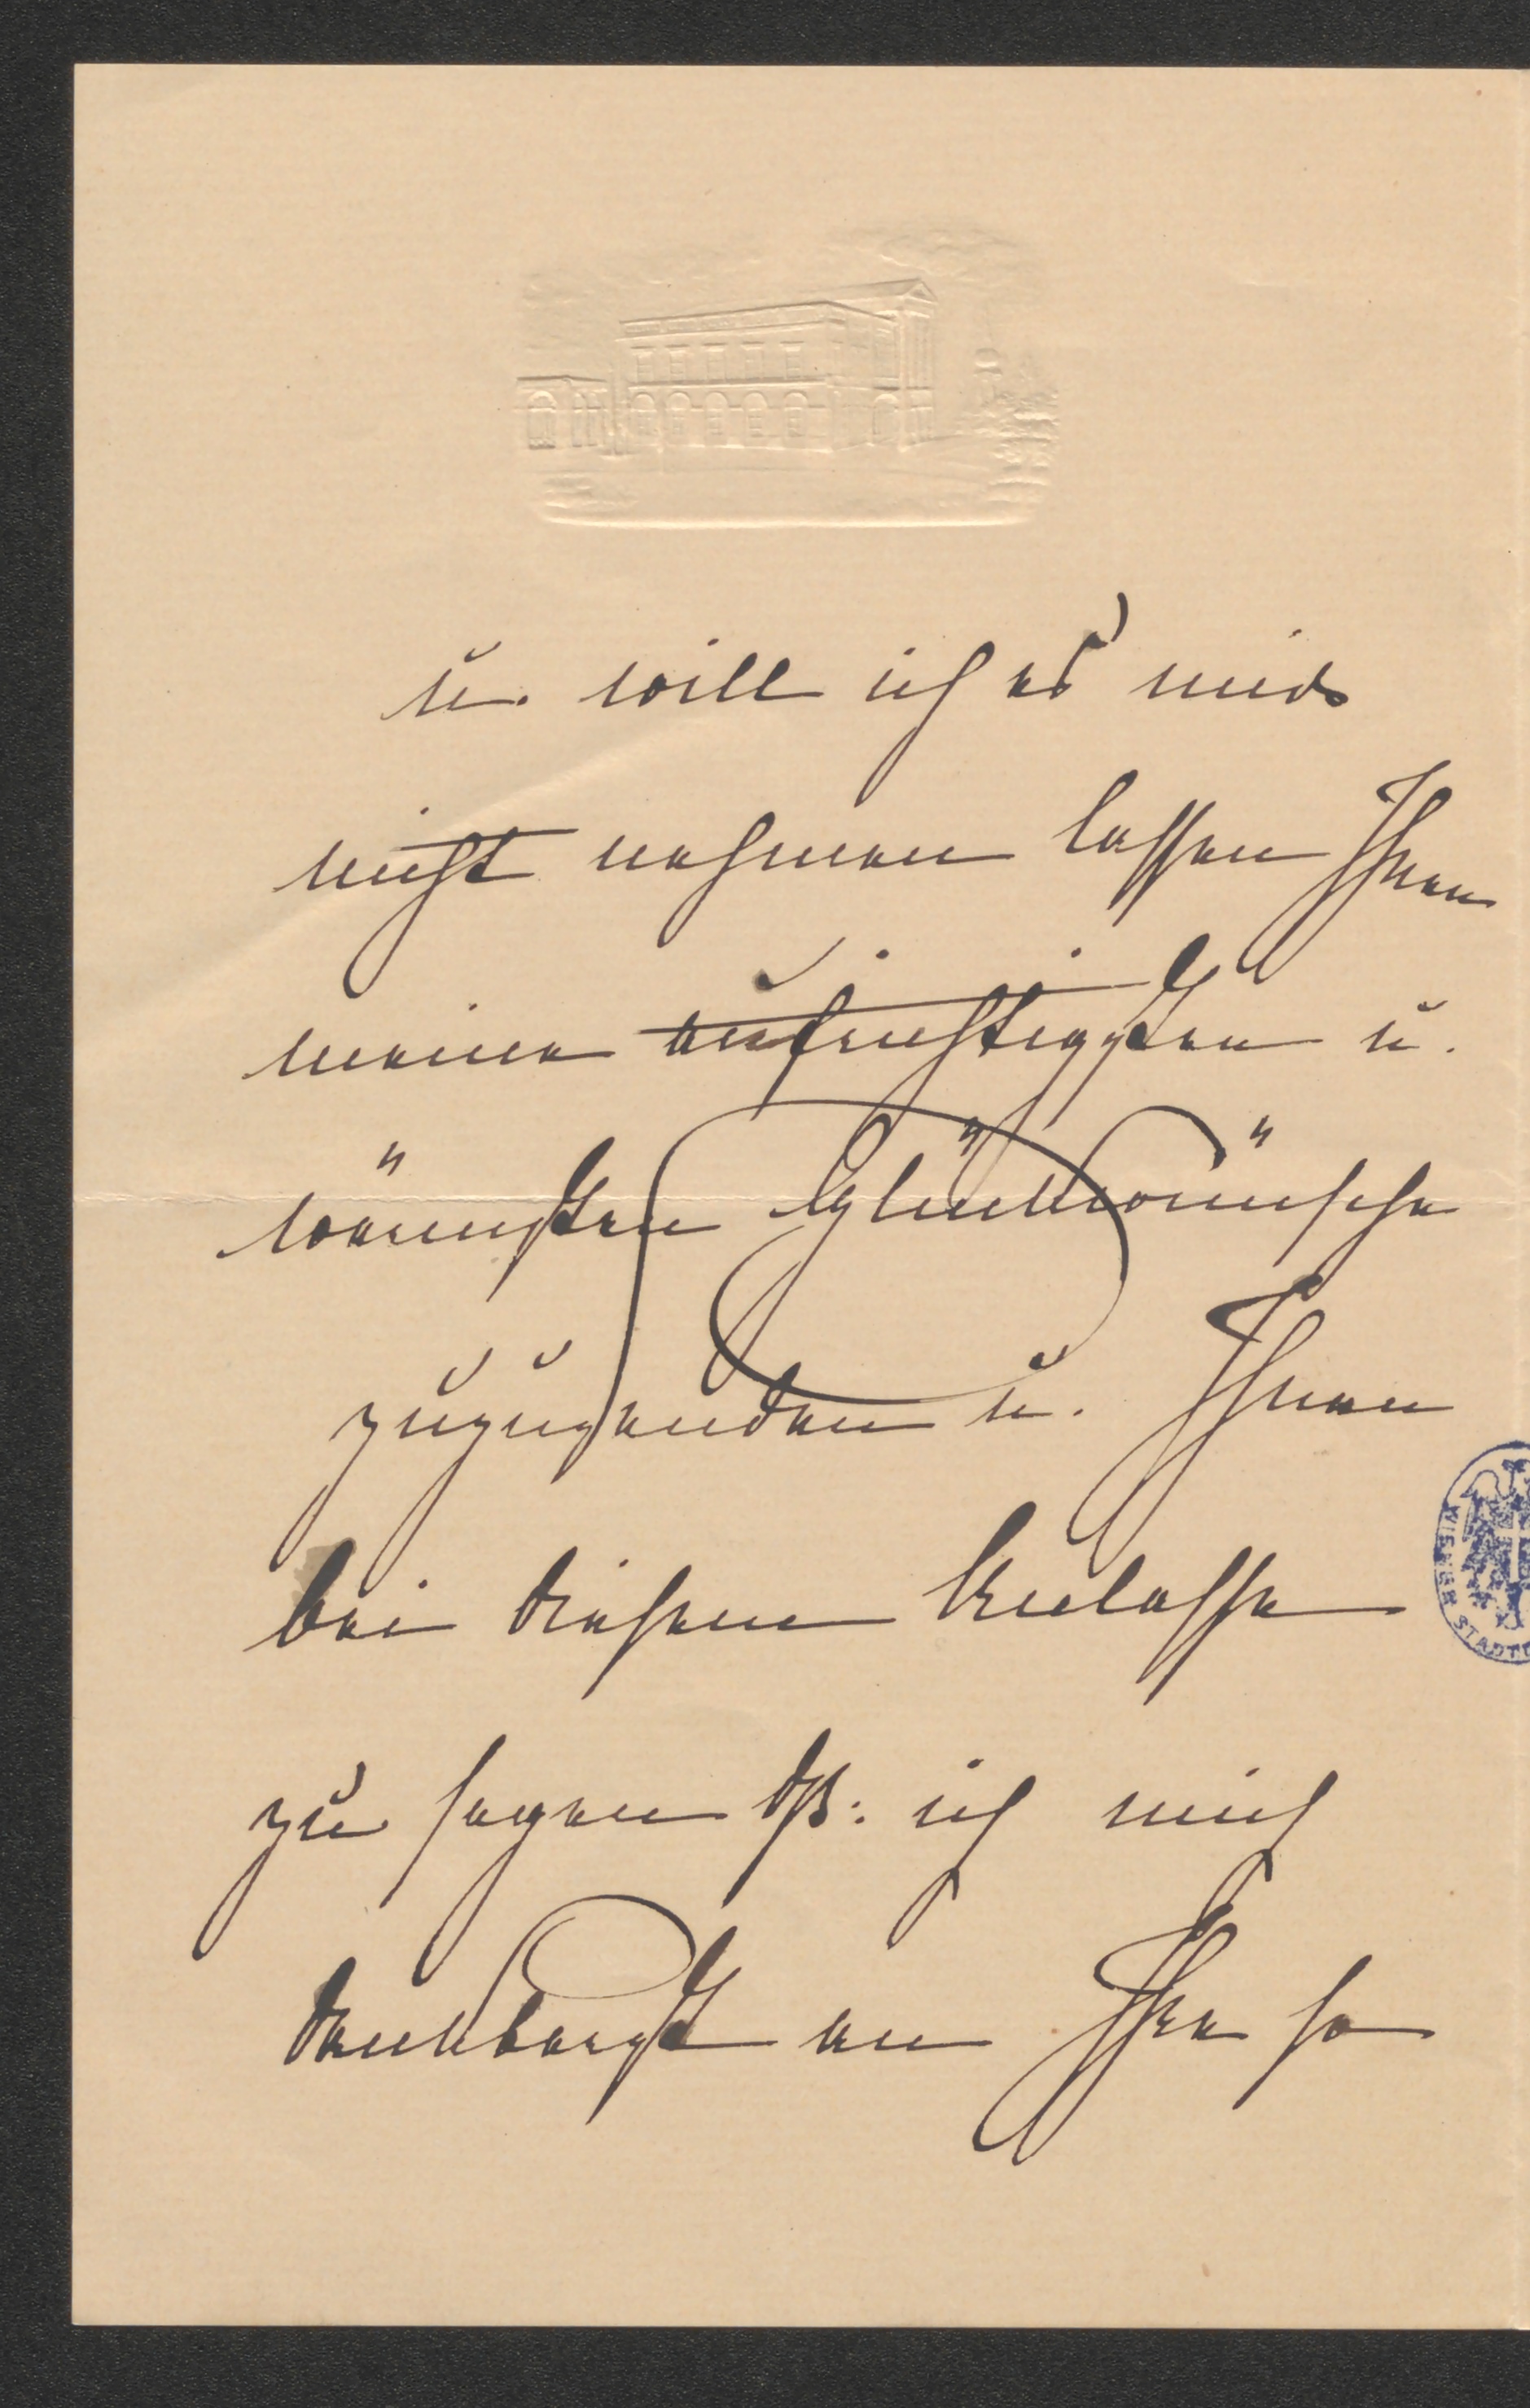 u. will ich es mir
nicht nehmen lassen Ihnen
meine aufrichtigsten u.
wärmsten Glückwünsche
zuzusenden u. Ihnen
bei diesem Anlasse
zu sagen dß: ich mich
dankbarst an Ihre so
WIENER STADT